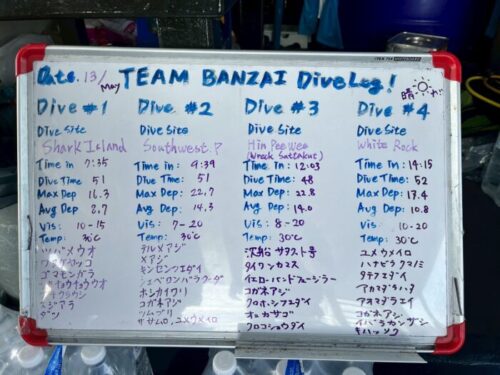 Date. 13/May TEAM BANZAI DiveLog! 晴
Dive #1
Dive Site
Shark Island
Time in 7:35
Dive Time 51
Max Dep 16.3
Avg Dep 8.7
Vis: 10-15
Temp: 30℃
ツバメウオ
ゴマモンガラ
スジアラ
Dive #2
Dive Site
Southwest P
Time in: 9:39
Dive Time: 51
Max Dep: 22.7
Avg Dep: 14.3
Vis: 7-20
Temp: 30℃
テルメアジ
メアジ
キンセンフエダイ
シェベロンバラクーダ
ホシカイワリ
コガネアジ
ツムブリ
ササムロ、ユメウメイロ
Dive #3
Dive Site
Hin Pee Wee
(Wreck Sattakut)
Time in: 12:03
Dive Time: 48
Max Dep: 22.8
Avg Dep: 14.0
Vis: 8-20
Temp: 30℃
沈船 サタクト号
タイワンカマス
イエローバンドフュージラー
コガネアジ
クロホシフエダイ
オニカサゴ
クロコショウダイ
Dive #4
Dive Site
White Rock
Time in: 14:15
Dive Time: 52
Max Dep: 17.4
Avg Dep: 10.8
Vis: 10-20
Temp: 30℃
ユメウメイロ
ハナビラクマノミ
タテフエダイ
アカマダラハタ
アオマダラエイ
コガネアジ
イバラカンザシ